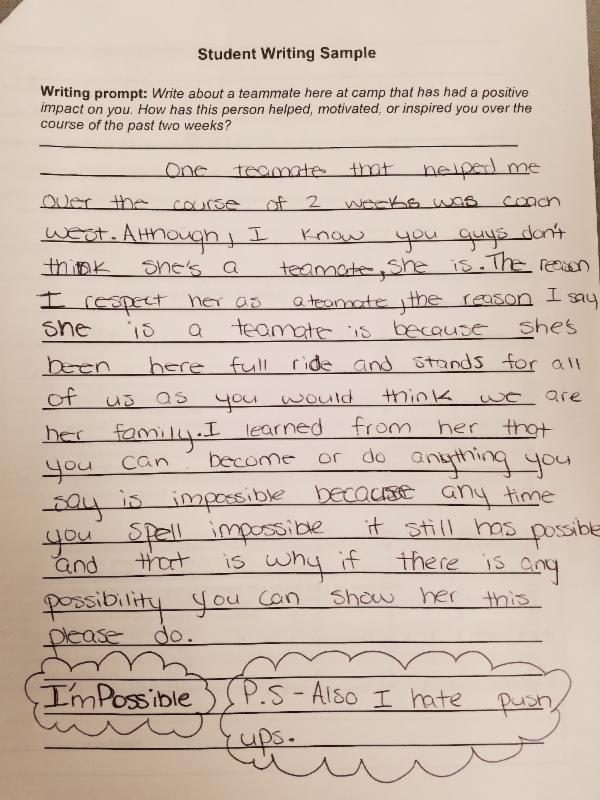 Student Writing Sample
Writing prompt: Write about a teammate here at camp that has had a positive
impact on you. How has this person helped, motivated, or inspired you over the
course of the past two weeks?
One teamate that helped me
over the course of 2 weeks was coach
west. Although, I know you guys don't
think she's a teamate, she is. The reason
I respect her as a teamate, the reason I say
she is a teamate is because she's
been here full ride and stands for all
of us as you would think we are
her family. I learned from her that
you can become or do anything you
say is impossible because any time
you spell impossible it still has possible
and that is why if there is any
possibility you can show her this
please do.
I'mPossible
P.S - Also I hate push
ups.